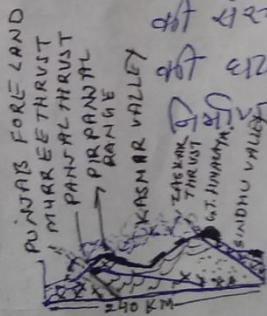 PUNJAB FORE LAND
MURREE THRUST
PANJAL THRUST
PIRPANJAL
RANGE
KASMAR VALLEY
ZASKAR
THRUST
GT. HIMALAYA
SINDHU VALLEY
240 KM
की
की घाट